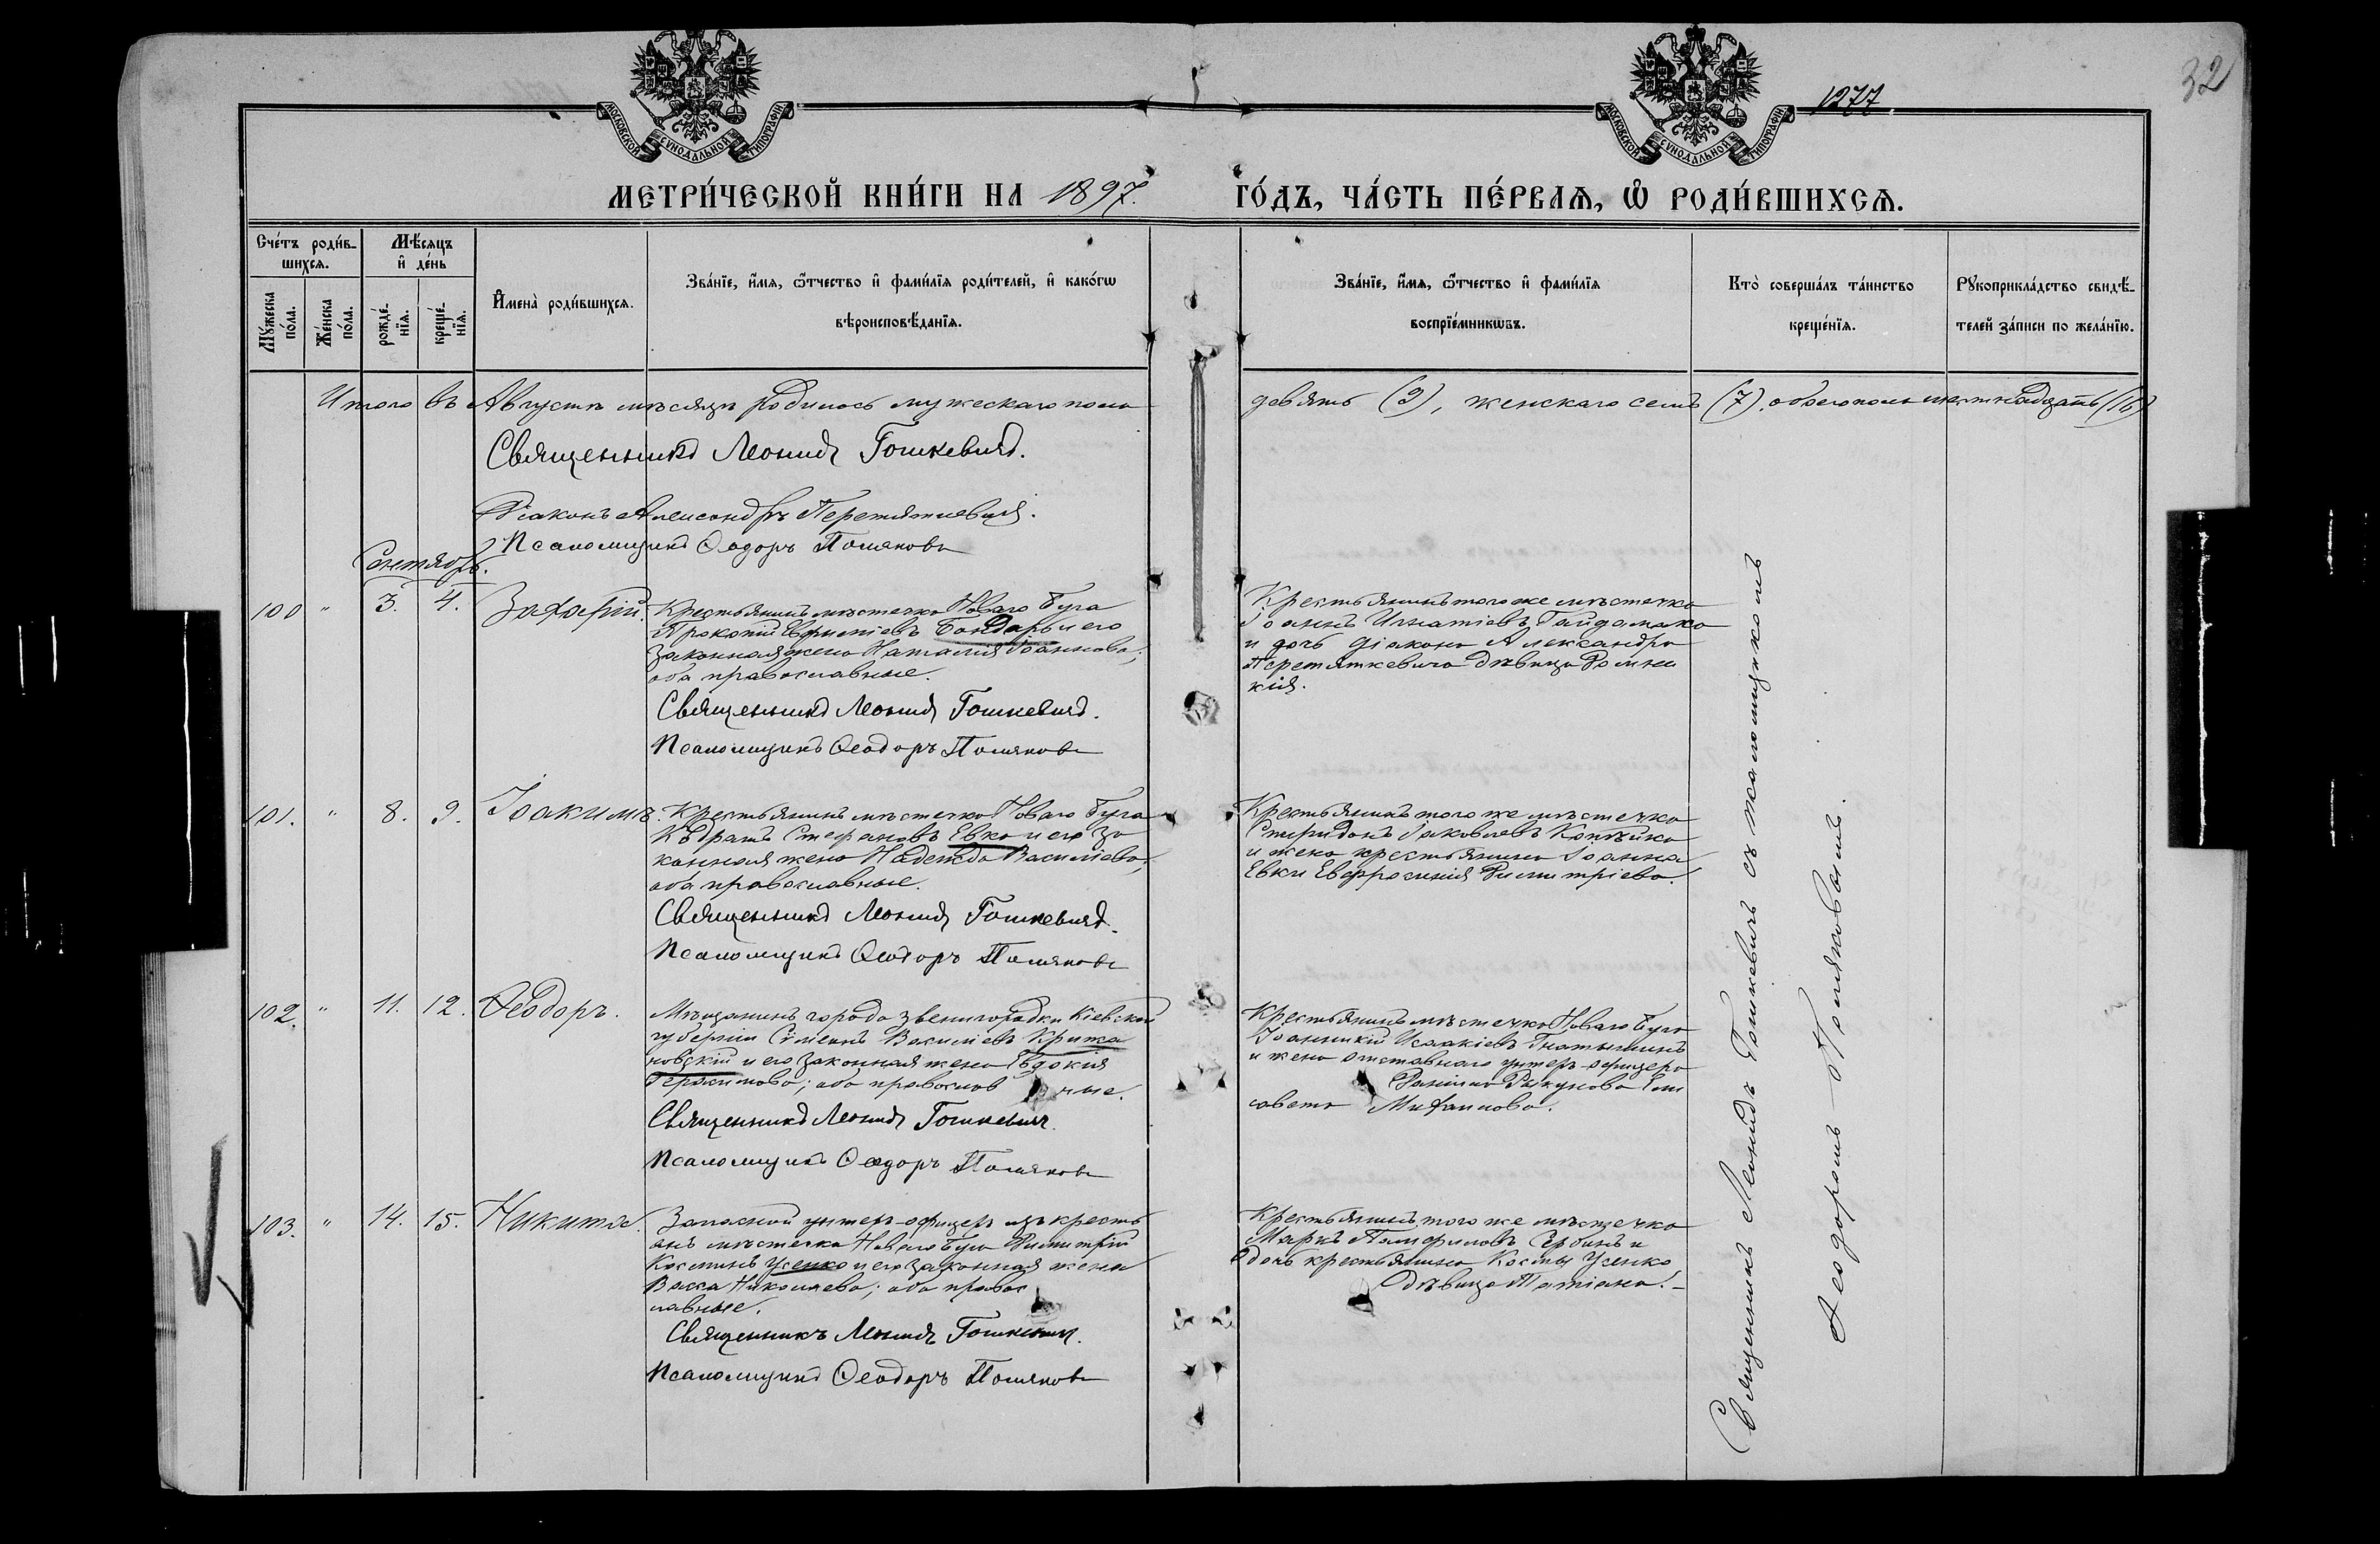 32
1277
МОСКОВСКОЙ СѴНОДАЛЬНОЙ ТИПОГРАФІИ
МОСКОВСКОЙ СѴНОДАЛЬНОЙ ТИПОГРАФІИ
МЕТРИ́ЧЕСКОЙ КНИ́ГИ НА 1897. ГО́ДЪ, ЧА́СТЬ ПЕ́РВАѦ, Ѡ҆ РОДИ́ВШИХСѦ.
Сче́тъ роди́в-
шихсѧ.
Мꙋ́жеска по́ла.
Же́нска по́ла.
Мѣ́сѧцъ
и҆ де́нь
рожде́-
нїѧ.
креще́-
нїѧ.
И҆мена̀ роди́вшихсѧ.
Зва́нїе, и҆́мѧ, ѻ҆́тчество и҆ фами́лїѧ роди́телей, и҆ како́гѡ
вѣроисповѣ́данїѧ.
Зва́нїе, и҆́мѧ, ѻ҆́тчество и҆ фами́лїѧ
воспрїе́мникѡвъ.
Кто̀ соверша́лъ та́инство
креще́нїѧ.
Рꙋкоприкла́дство свидѣ́-
телей за́писи по жела́нїю.
Итого въ Августѣ мѣсяцѣ родилось мужескаго пола девять (9), женскаго семь (7), обоего пола шестнадцать (16)
Священникъ Леонидъ Гошкевичъ.
Діаконъ Александръ Перетяткевичъ.
Псаломщикъ Ѳеодоръ Поляковъ
Сентябрь.
100 " 3. 4. Захарій.
Крестьянинъ мѣстечка Новаго Буга
Прокопій Евфиміевъ Бондарь и его
законная жена Наталія Іоаннова;
оба православные.
Священникъ Леонидъ Гошкевичъ.
Псаломщикъ Ѳеодоръ Поляковъ
Крестьянинъ того же мѣстечка
Іоаннъ Игнатіевъ Гайдамака
и дочь діакона Александра
Перетяткевича дѣвица Домни
кія.
101. " 8. 9. Іоакимъ.
Крестьянинъ мѣстечка Новаго Буга
Кѡдратъ Стефановъ Евко и его за
конная жена Надежда Василіева;
оба православные.
Священникъ Леонидъ Гошкевичъ.
Псаломщикъ Ѳеодоръ Поляковъ
Крестьянинъ того же мѣстечка
Спиридонъ Іаковлевъ Копѣйка
и жена крестьянина Іоанна
Евки Евфросинія Димитріева.
102. " 11. 12. Ѳеодоръ.
Мѣщанинъ города Звенигородки Кіевской
губерніи Сѵмеонъ Василіевъ Крижа
новскій и его законная жена Евдокія
Герасимова; оба православ ные.
Священникъ Леонидъ Гошкевичъ.
Псаломщикъ Ѳеодоръ Поляковъ
Крестьянинъ мѣстечка Новаго Буга
Іоанникій Исаакіевъ Гнатышинъ
и жена отставного унтеръ-офицера
Даніила Рыкунова Ели
савета Михаилова.
103. " 14. 15. Никита.
Запасной унтеръ-офицеръ изъ кресть
янъ мѣстечка Новаго Буга Димитрій
Косминъ Усенко и его законная жена
Васса Николаева; оба правос
лавные.
Священникъ Леонидъ Гошкевичъ.
Псаломщикъ Ѳеодоръ Поляковъ
Крестьянинъ того же мѣстечка
Маркъ Памфиловъ Сербинъ и
дочь крестьянина Космы Усенко
дѣвица Татіана. -
Священникъ Леонидъ Гошкевичъ съ псаломщикомъ
Ѳеодоромъ Поляковымъ.